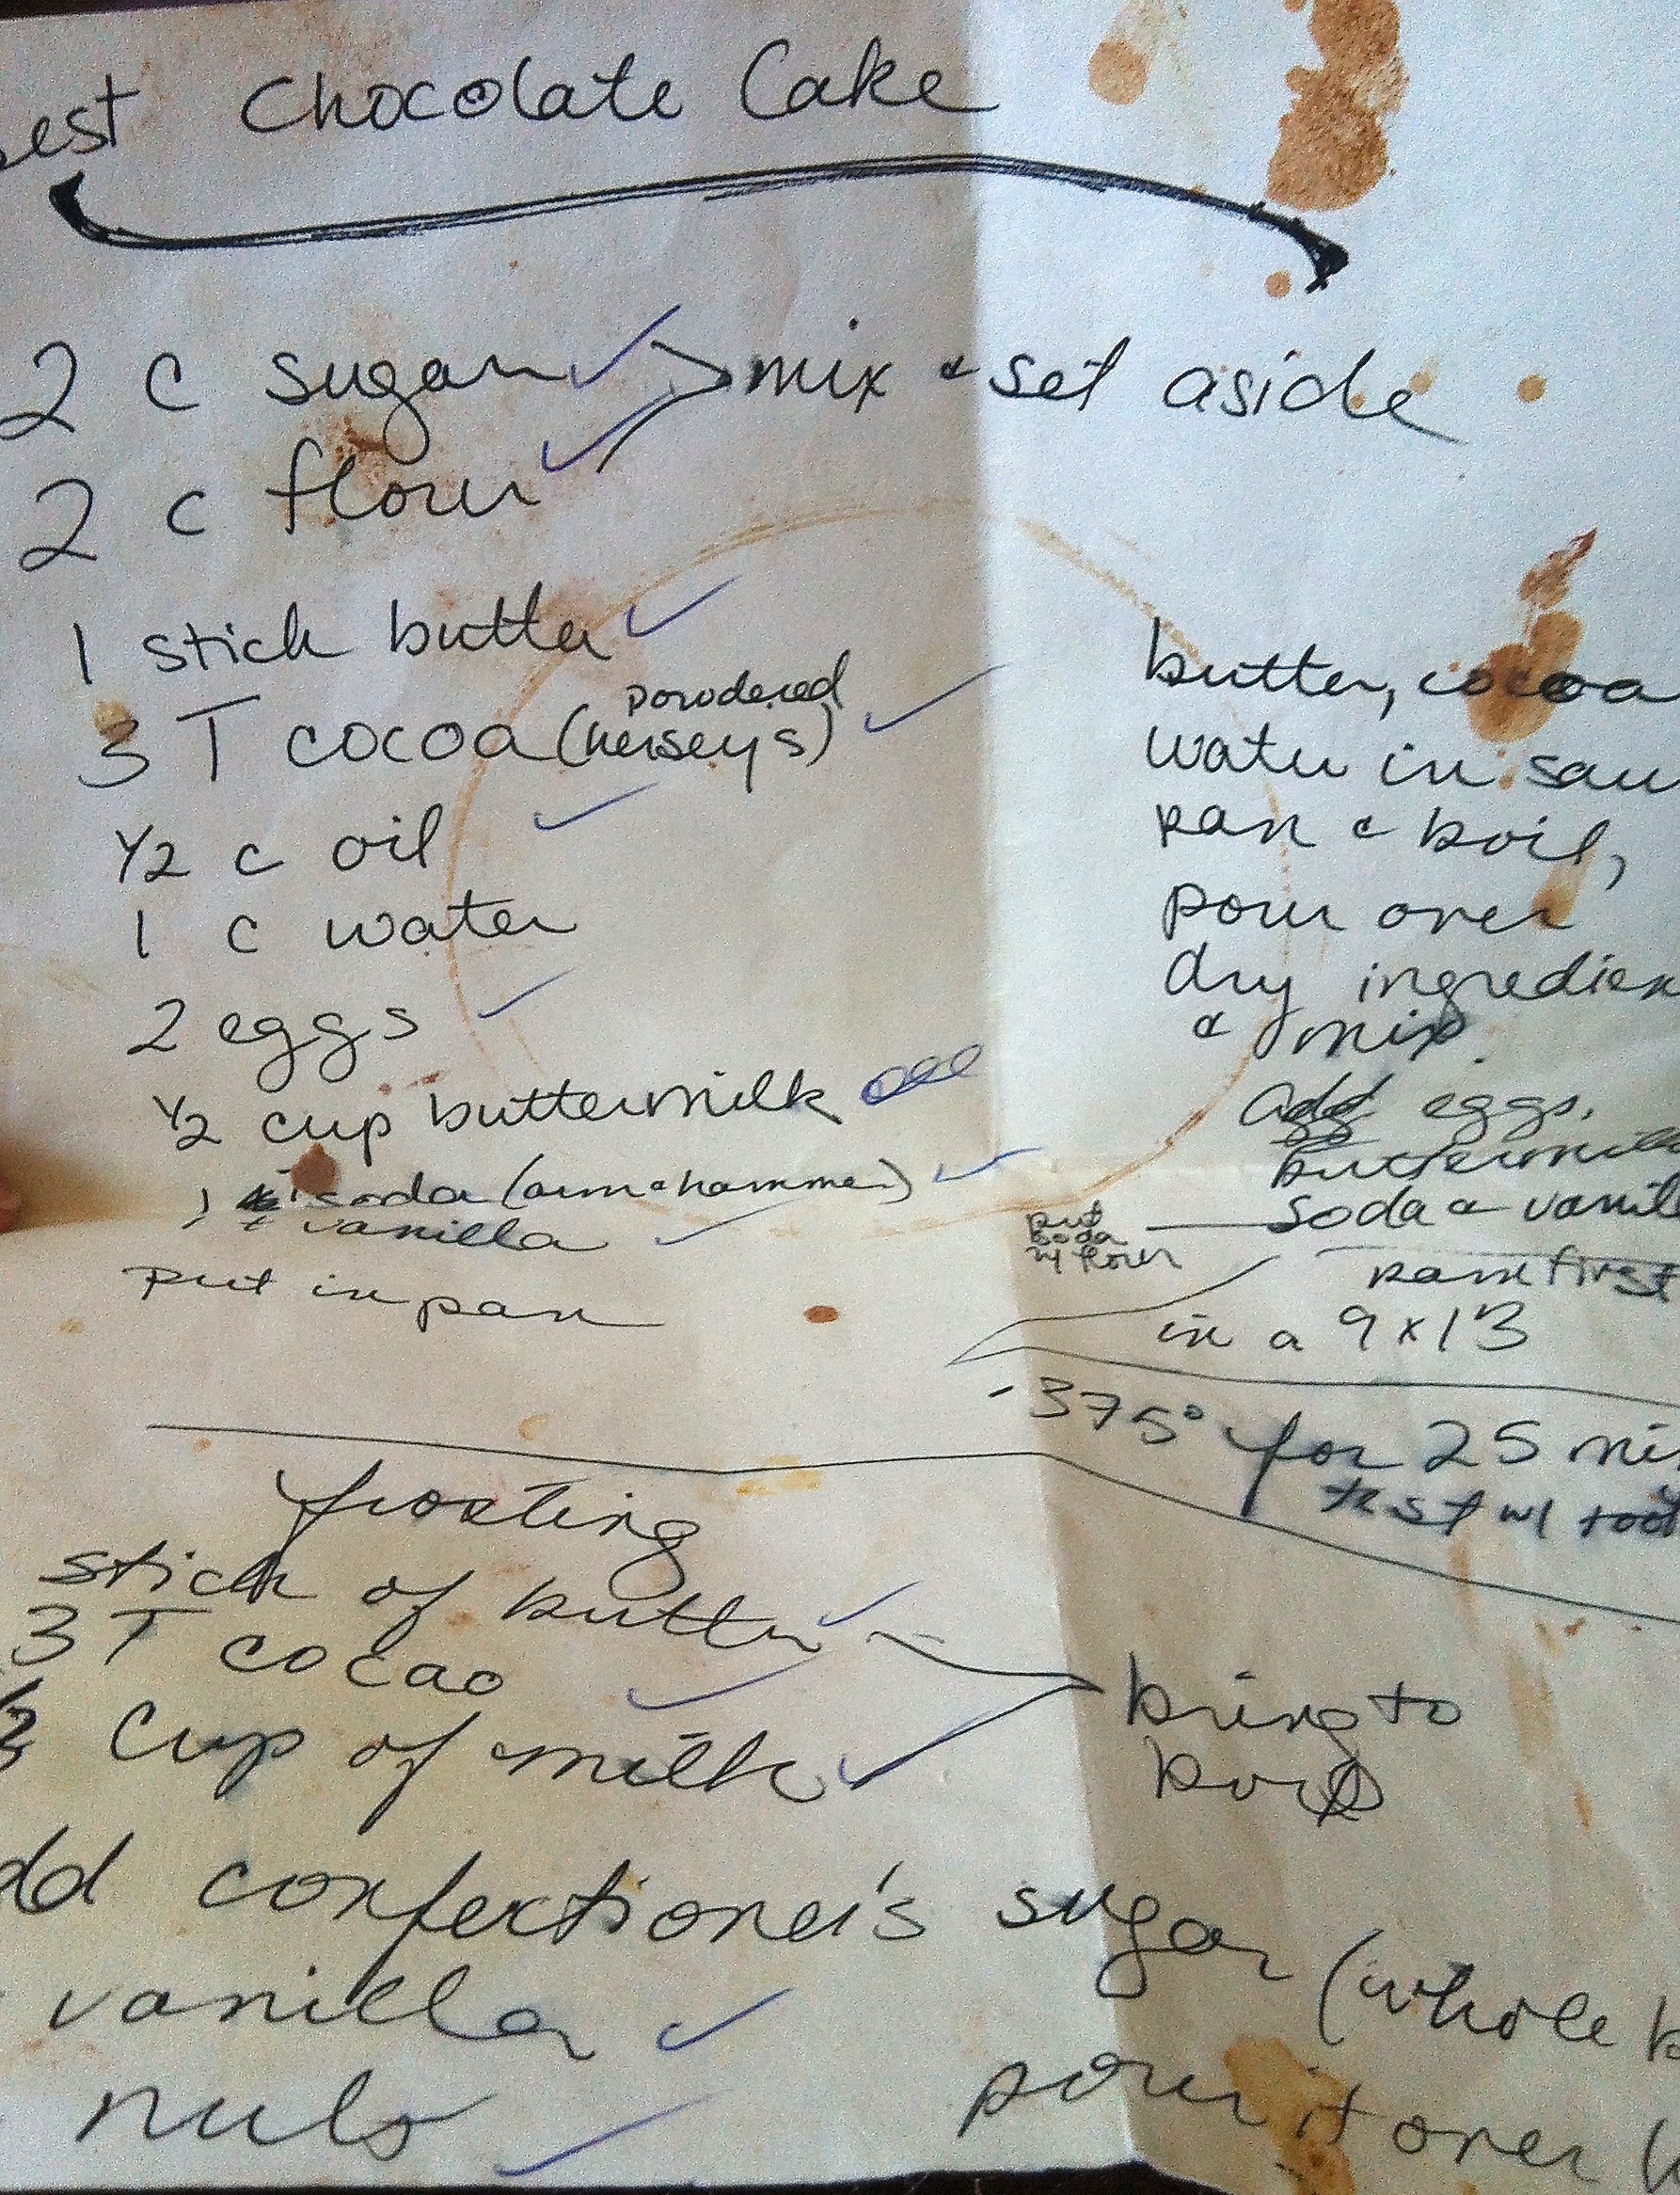 est Chocolate Cake
2 c sugar > mix & set aside
2 c flour
1 stick butter
3 T cocoa (powdered hersey's)
1/2 c oil
1 c water
2 eggs
1/2 cup buttermilk
1 t soda (arm & hammer)
1 t vanilla
put in pan
butter, cocoa
water in sau
pan & boil,
pour over
dry ingredien
& mix.
add eggs,
buttermil
soda & vanil
put
soda
w/ flour
pam first
in a 9x13
- 375° for 25 mi
test w/ toot
frosting
stick of butter
3 T cocao
cup of milk
bring to
boil
dd confectioner's sugar (whole b
vanilla
nuts
pour it over